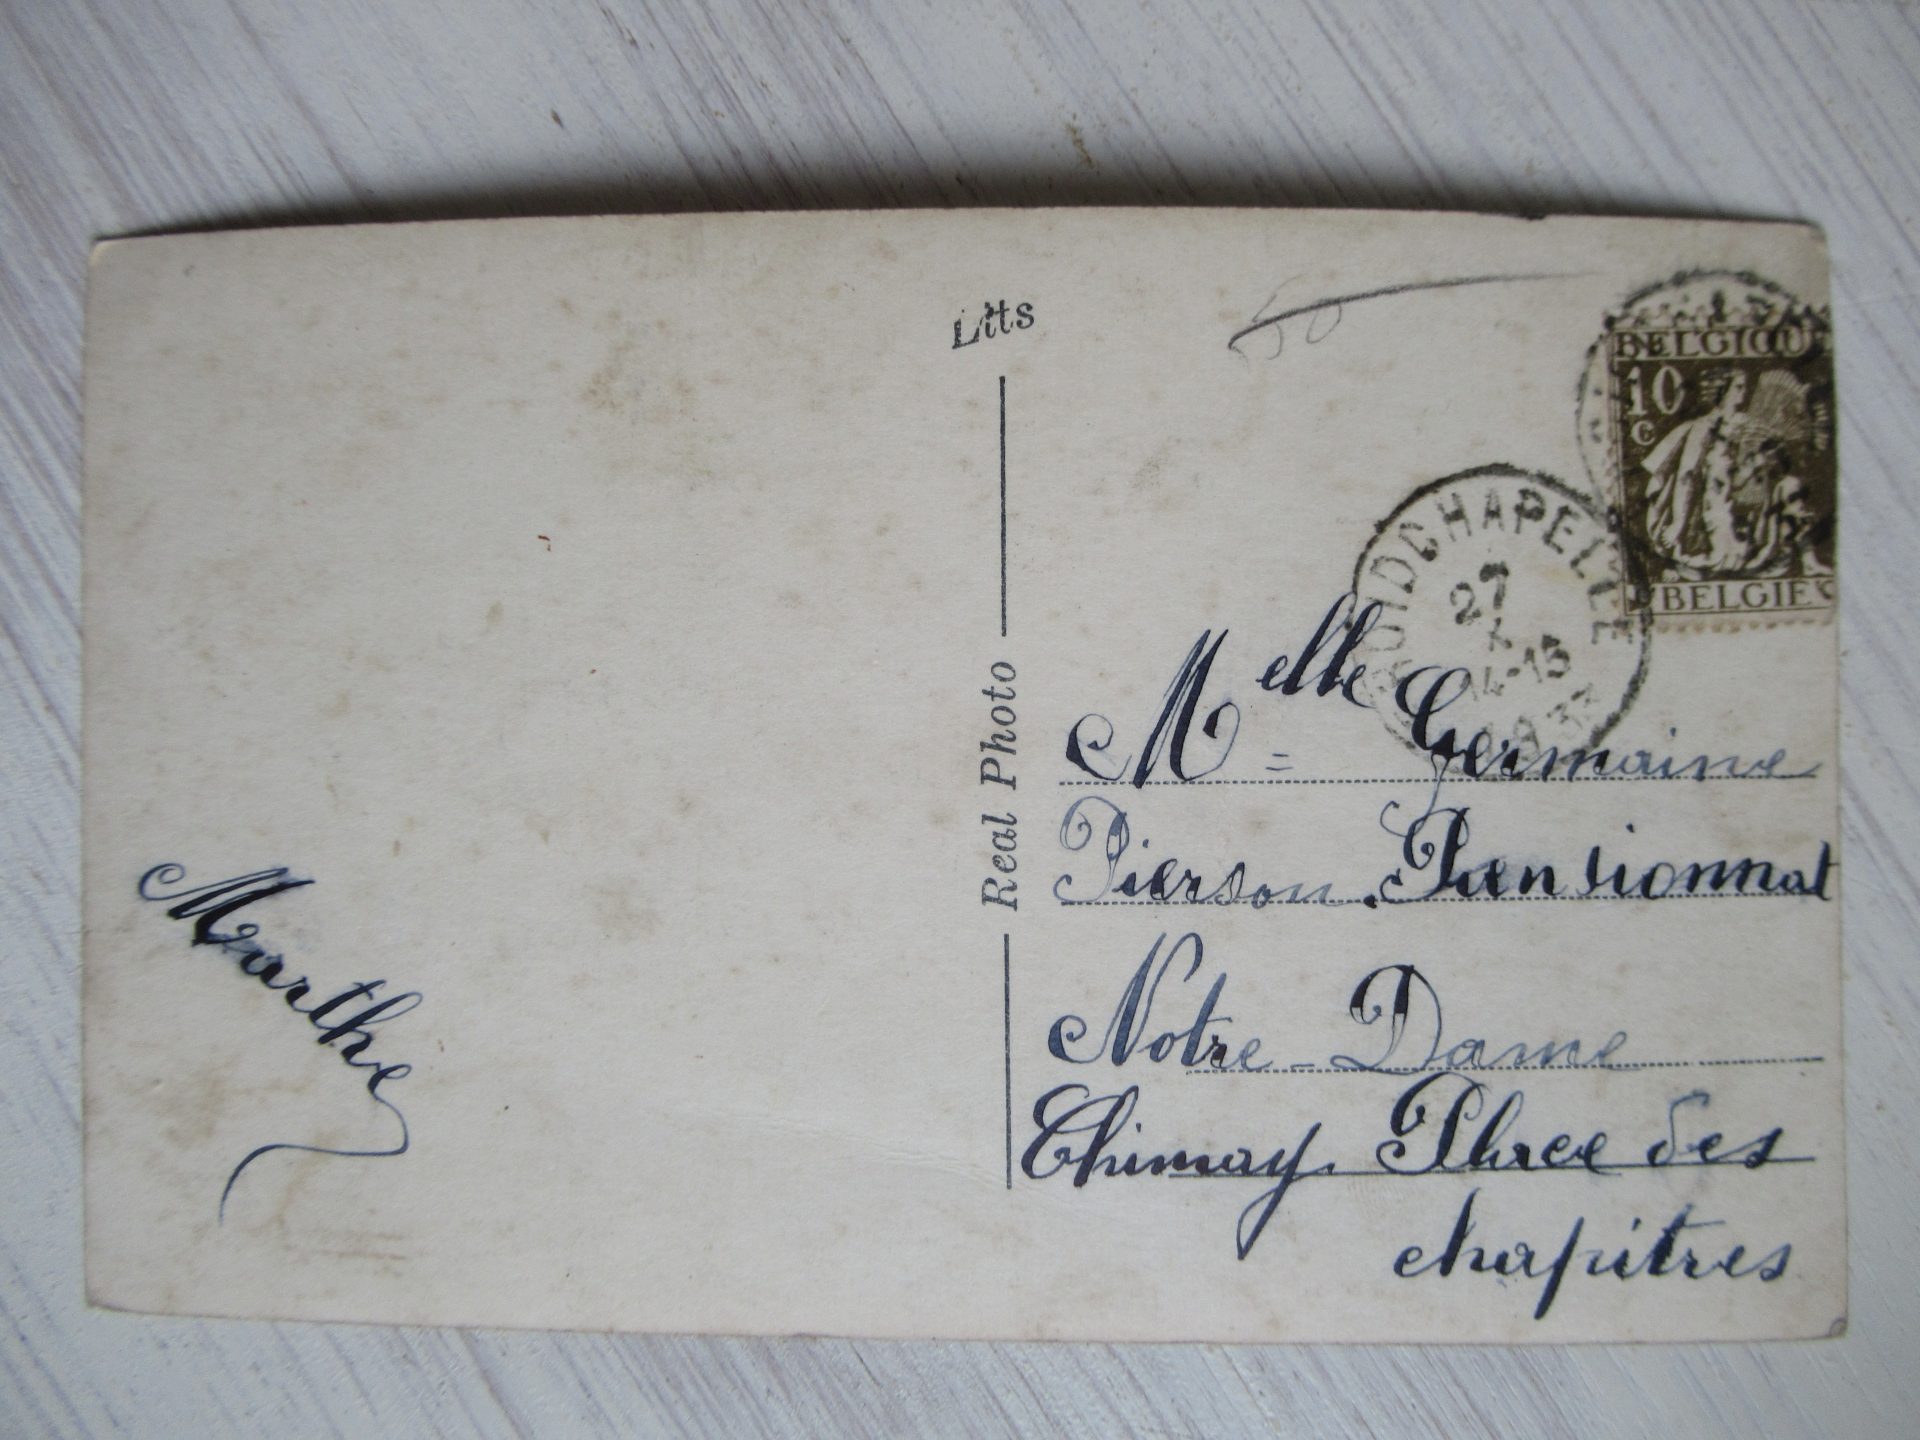 Lits
BELGIQUE
10
c
BELGIE
FROIDCHAPELLE
27
X
14-15
1933
Real Photo
Melle Germaine
Pierson. Pensionnat
Notre-Dame
Chimay. Place des
chapitres
Marthe